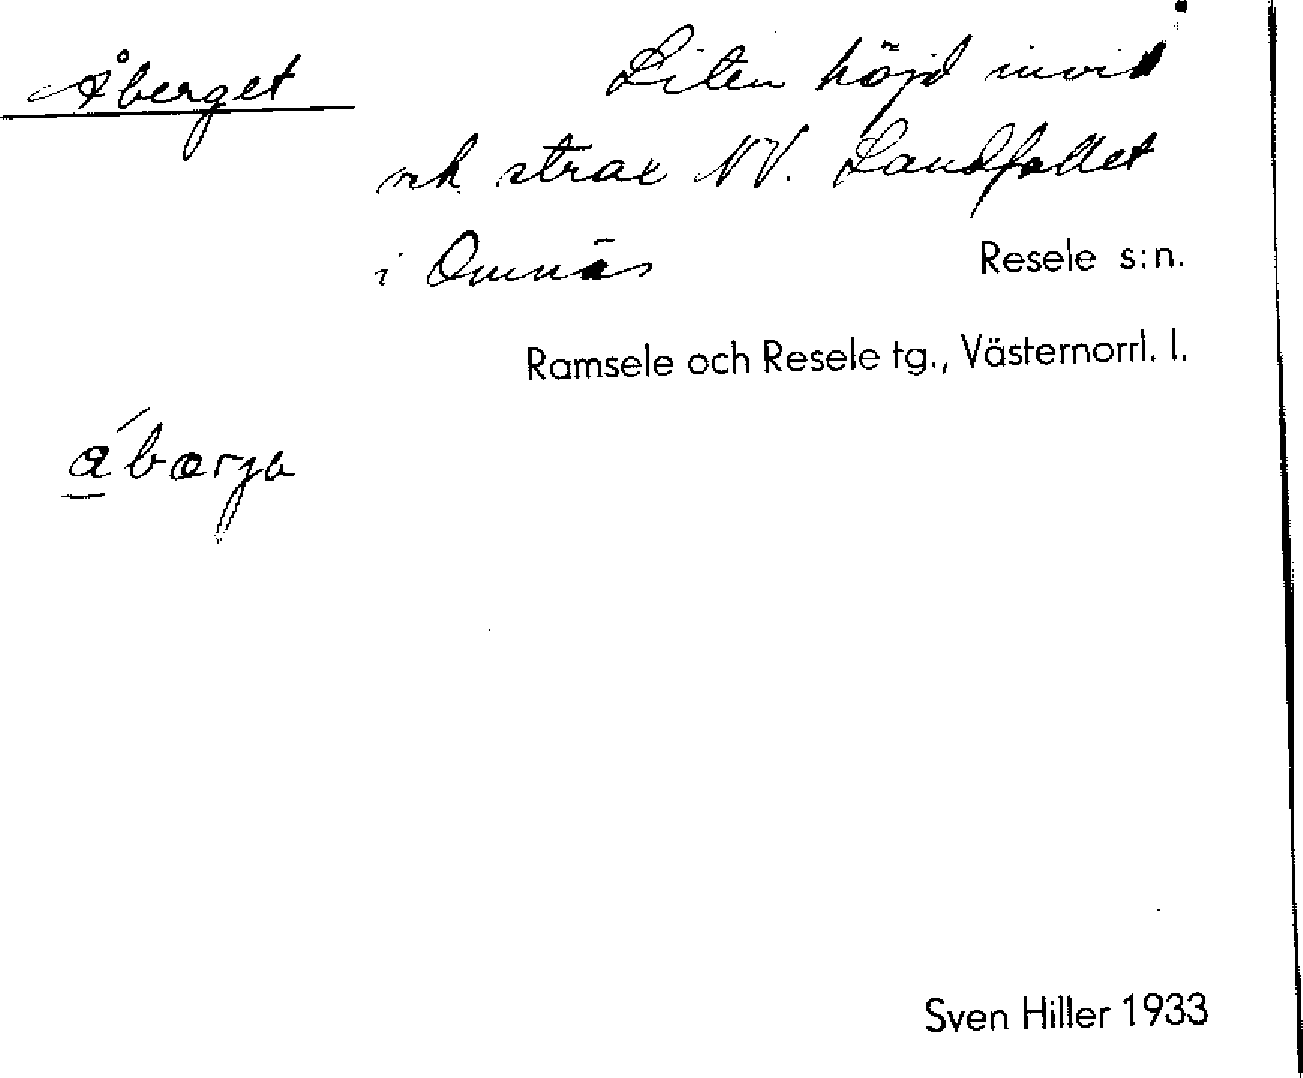 Åberget
Liten höjd invid
strax NV. Landfallet
i Omnäs
Resele s:n.
Ramsele och Resele tg., Västernorrl. l.
Sven Hiller 1933